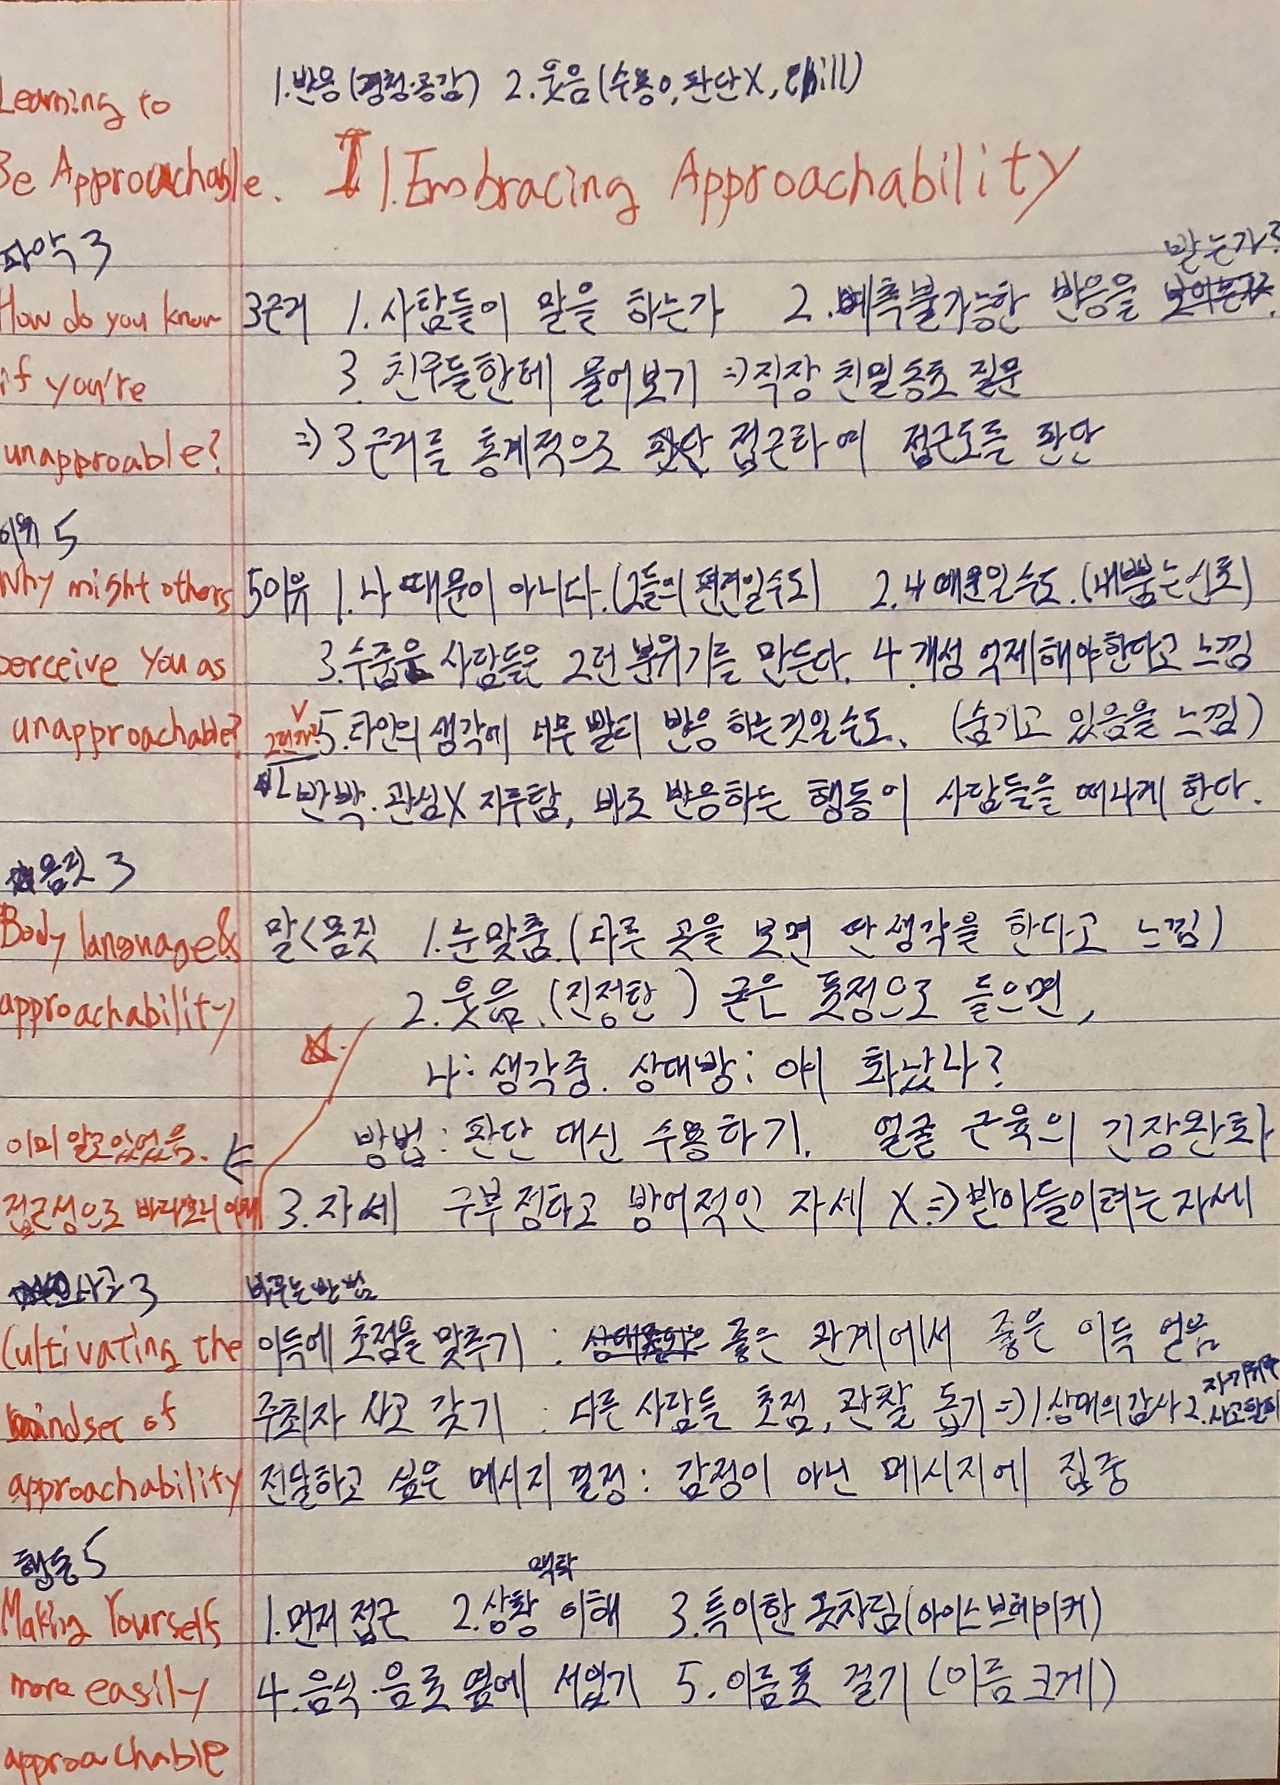 1.반응(경청·공감) 2.웃음(수용o,판단X, chill)
Learning to
Be Approachable. I 1.Embracing Approachability
파악3
받는가?
How do you know 3근거 1.사람들이 말을 하는가 2.예측불가능한 반응을
if you're 3. 친구들한테 물어보기 => 직장 친밀송도 질문
unapproable? => 3근거를 통계적으로 접근하여 접근도를 판단
이유5
Why might others 5이유 1.나 때문이 아니다.(그들의 편견일수도) 2.나 때문일수도.(내뿜는신호)
perceive You as 3.수줍은 사람들은 그런 분위기를 만든다. 4.개성 억제해야한다고 느낌
unapproachable? 그런가? V 5.타인의 생각에 너무 빨리 반응 하는것일수도. (숨기고 있음을 느낌)
반박·관심X 지루함, 바로 반응하는 행동이 사람들을 떠나게 한다.
몸짓 3
Body language& 말<몸짓 1.눈맞춤.(다른 곳을 보면 딴생각을 한다고 느낌)
approachability 2.웃음.(진정한) 굳은 표정으로 들으면,
나: 생각중. 상대방: 얘 화났나?
이미 알고있었음. <= 방법: 판단 대신 수용하기. 얼굴 근육의 긴장완화
접근성으로 바라보니 이해 3.자세 구부정하고 방어적인 자세 X => 받아들이려는자세
사고3 바꾸는방법
Cultivating the 이득에 초점을 맞추기 : 좋은 관계에서 좋은 이득 얻음
mindset of 주최자 사고 갖기 : 다른 사람들 초점, 관찰 돕기 => 1.상대의감사 2.자기위주 사고탈피
approachability 전달하고 싶은 메시지 결정: 감정이 아닌 메시지에 집중
행동5
맥락
Making Yourself 1.먼저 접근 2.상황 이해 3.특이한 옷차림(아이스브레이커)
more easily 4.음식·음료 옆에 서있기 5.이름표 걸기 (이름크게)
approachable